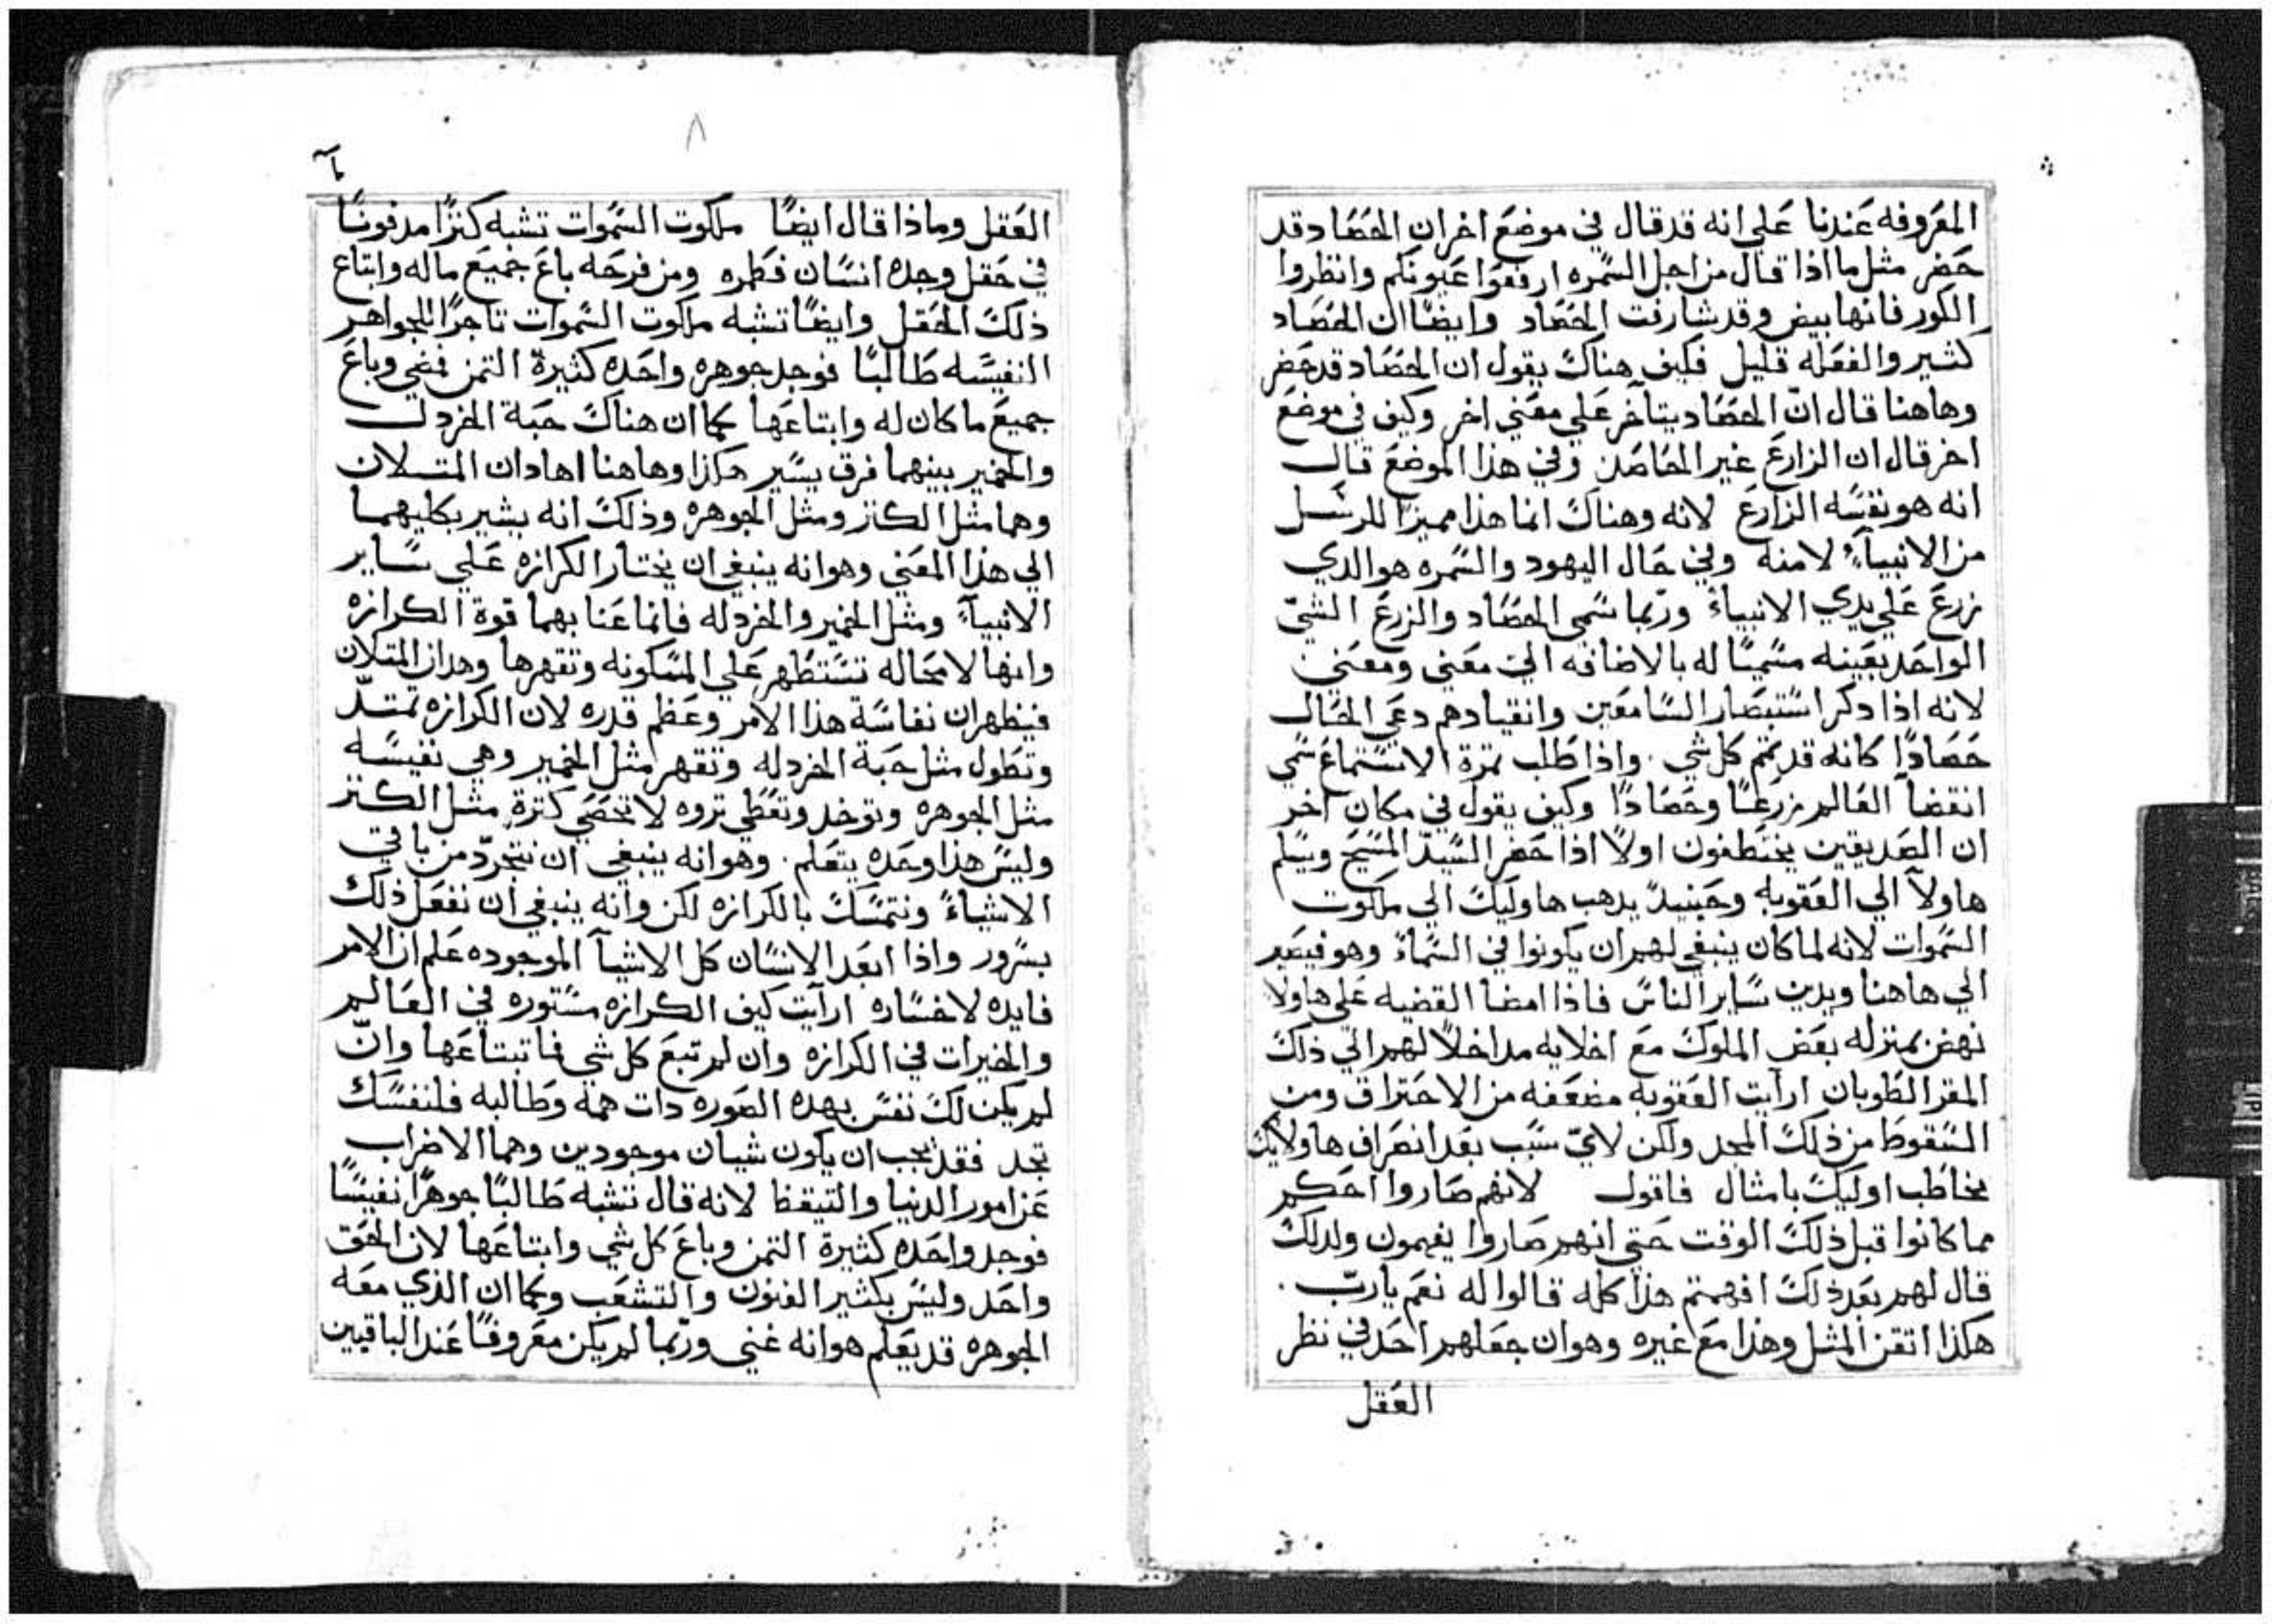 المعروفه عندنا علي انه قد قال في موضع اخر ان الحصاد قد
حضر مثل ما اذا قال من اجل السمره ارفعوا عيونكم وانظروا
الكور فانها بيض وقد شارفت الحصاد وايضًا ان الحصاد
كثير والفعله قليل فكيف هناك يقول ان الحصاد قد حضر
وهاهنا قال انّ الحصاد يتآخر علي معني اخر وكيف في موضع
اخر قال ان الزارع غير الحاصد وفي هذا الموضع قال
انه هو نفسه الزارع لانه وهناك انما هذا مميزًا للرسل
من الانبيآء لا منه وفي حال اليهود والسمره هو الدي
زرع علي يدي الانبياء وربّما سمي الحصاد والزرع الشيّ
الواحد بعينه مسميًا له بالاضافه الي معني ومعني
لانه اذا دكر استبصار السامعين وانقيادهم دعي الحال
حصادًا كانه قد تمّ كل شي . واذا طلب تمرة الاستماع سمي
انقضآ العالم زرعًا وحصادًا وكيف يقول في مكان آخر
ان الصديقين يختطفون اولاً اذا حضر السيّد المسيح ويسلم
هاولآ الي العقوبه وحينيدً يدهب هاوليك الي ملكوت
السموات لانه لما كان ينبغي لهم ان يكونوا في السماء وهو فيصير
الي هاهنا ويدين ساير الناس فاذا امضا القضيه علي هاولا
نهض بمنزله بعض الملوك مع اخلايه مداخلاً لهم الي ذلك
المقر الطوبان ارآيت العقوبه مضعفه من الاحتراق ومن
السقوط من ذلك المجد ولكن لايّ سبب بعد انصراف هاولايك
يخاطب اوليك بامثال فاقول لانهم صاروا احكم
مما كانوا قبل ذلك الوقت حتي انهم صاروا يفهمون ولدلك
قال لهم بعد ذلك افهمتم هذا كله قالوا له نعم يا ربّ .
هكذا اتقن المثل وهذا مع غيره وهو ان جعلهم احد في نظر
العقل
٨
العقل وماذا قال ايضًا ملكوت السموات تشبه كنزًا مدفونًا
في حقل وجده انسان فطمره ومن فرحه باع جميع ماله وابتاع
ذلك الحقل وايضًا تشبه ملكوت السموات تاجرًا للجواهر
النفيسه طالبًا فوجد جوهره واحده كثيرة التمن فمضي وباع
جميع ما كان له وابتاعها كما ان هناك حبة الخردل
والخمير بينهما فرق يسير هكذا وهاهنا اهادان المتلان
وهما مثل الكنز ومثل الجوهره وذلك انه يشير بكليهما
الي هذا المعني وهو انه ينبغي ان يختار الكرازه علي ساير
الانبيآء ومثل الخمير والخردله فانما عنا بهما قوة الكرازه
وانها لا محاله تستظهر علي المسكونه وتقهرها وهدان المتلان
فيظهران نفاسة هذا الامر وعظم قدره لان الكرازه تمتدّ
وتطول مثل حبة الخردله وتقهر مثل الخمير وهي نفيسه
مثل الجوهره وتوخد وتعطي تروه لا تحصي كترة مثل الكنز
وليس هذا وحده يتعلم . وهو انه ينبغي ان نتجرّد من باقي
الاشياء ونتمسك بالكرازه لكن وانه ينبغي ان نفعل ذلك
بسرور واذا ابعد الانسان كل الاشيآ الموجوده علم ان الامر
فايده لا خساره ارآيت كيف الكرازه مستوره في العالم
والخيرات في الكرازه وان لم تبع كل شي فما تبتاعها وانّ
لم يكن لك نفس بهده الصوره دات همه وطالبه فلنفسك
تجد فقد يجب ان يكون شيان موجودين وهما الاضراب
عن امور الدنيا والتيقظ لانه قال تشبه طالبًا جوهرًا نفيسًا
فوجد واحده كثيرة التمن وباع كل شي وابتاعها لان الحق
واحد وليس بكثير الفنون والتشعب وكما ان الذي معه
الجوهره قد يعلم هو انه غني وربّما لم يكن معروفًا عند الباقيين